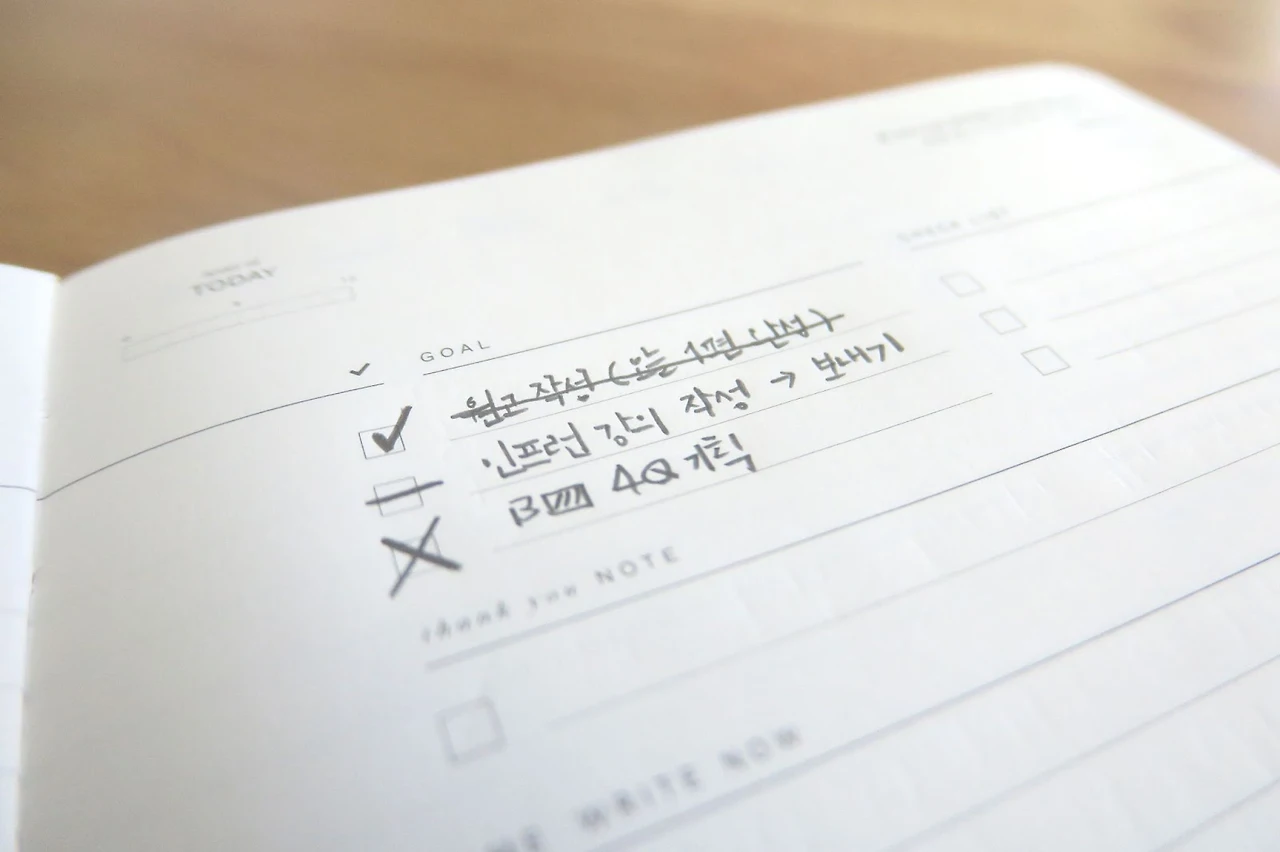 TODAY
GOAL
원고 작성 (오늘 1편 완성)
인프런 강의 작성 → 보내기
B 4Q 기획
CHECK LIST
thank you NOTE
WRITE NOW